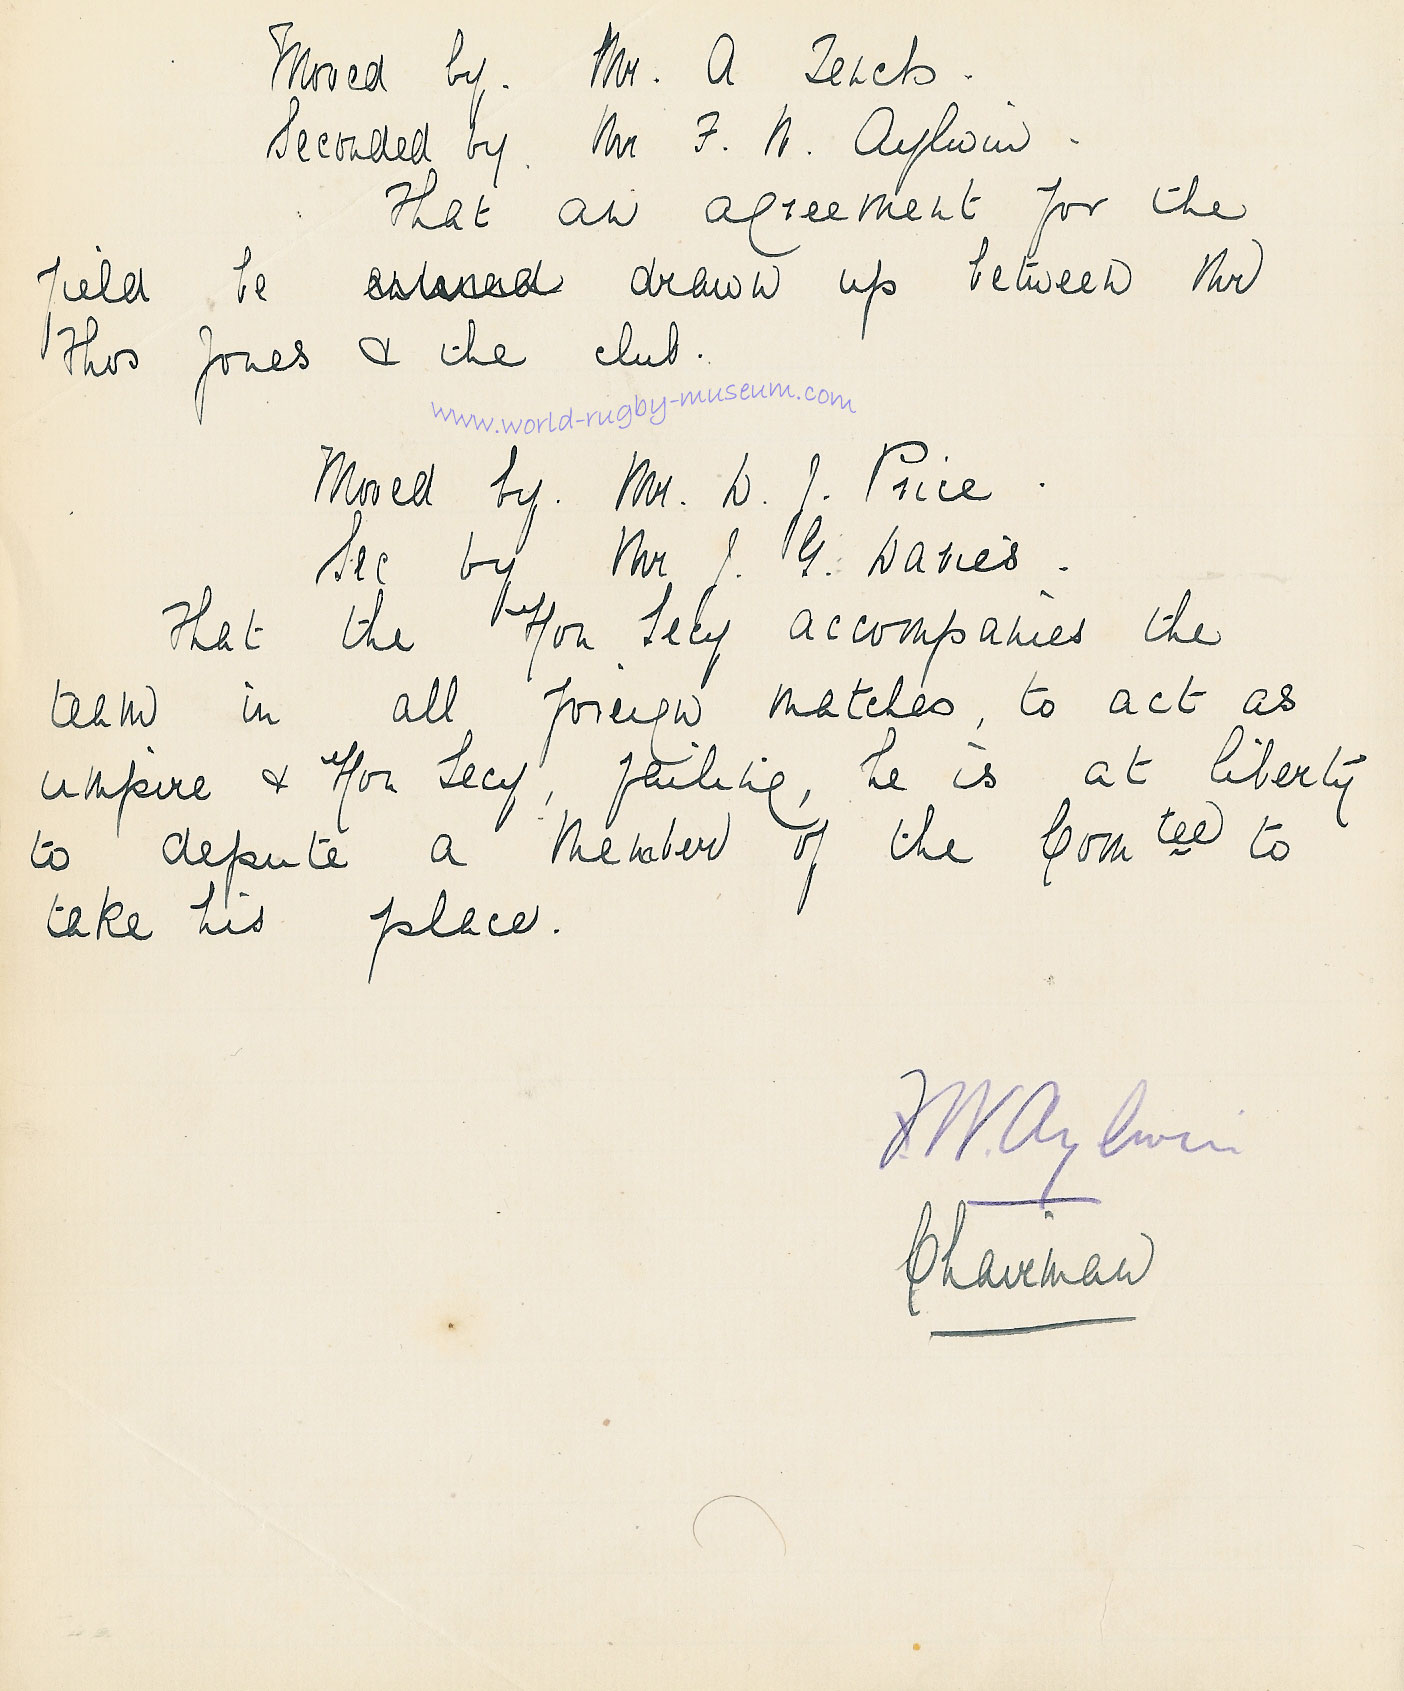 Moved by. Mr. A Tench.
Seconded by. Mr F. W. Aylwin.
That an agreement for the
field be drawn up between Mr
Thos Jones & the club.
www.world-rugby-museum.com
Moved by. Mr. D. J. Price.
Sec by Mr J. G. Davies.
That the Hon Secy accompanies the
team in all foreign matches, to act as
umpire & Hon Secy, failing, he is at liberty
to depute a Member of the Comtee to
take his place.
F.W. Aylwin
Chairman